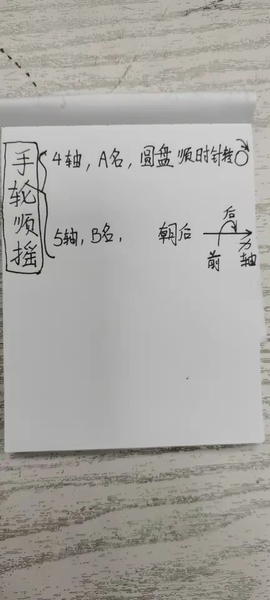 手轮顺摇
4轴，A名，圆盘顺时针转
5轴，B名，朝后
后
前
轴